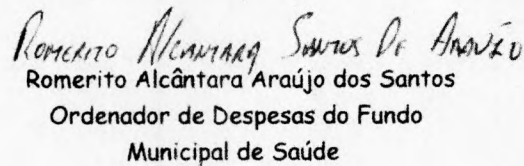 Romerito Alcantara Santos De Araújo
Romerito Alcântara Araújo dos Santos
Ordenador de Despesas do Fundo
Municipal de Saúde